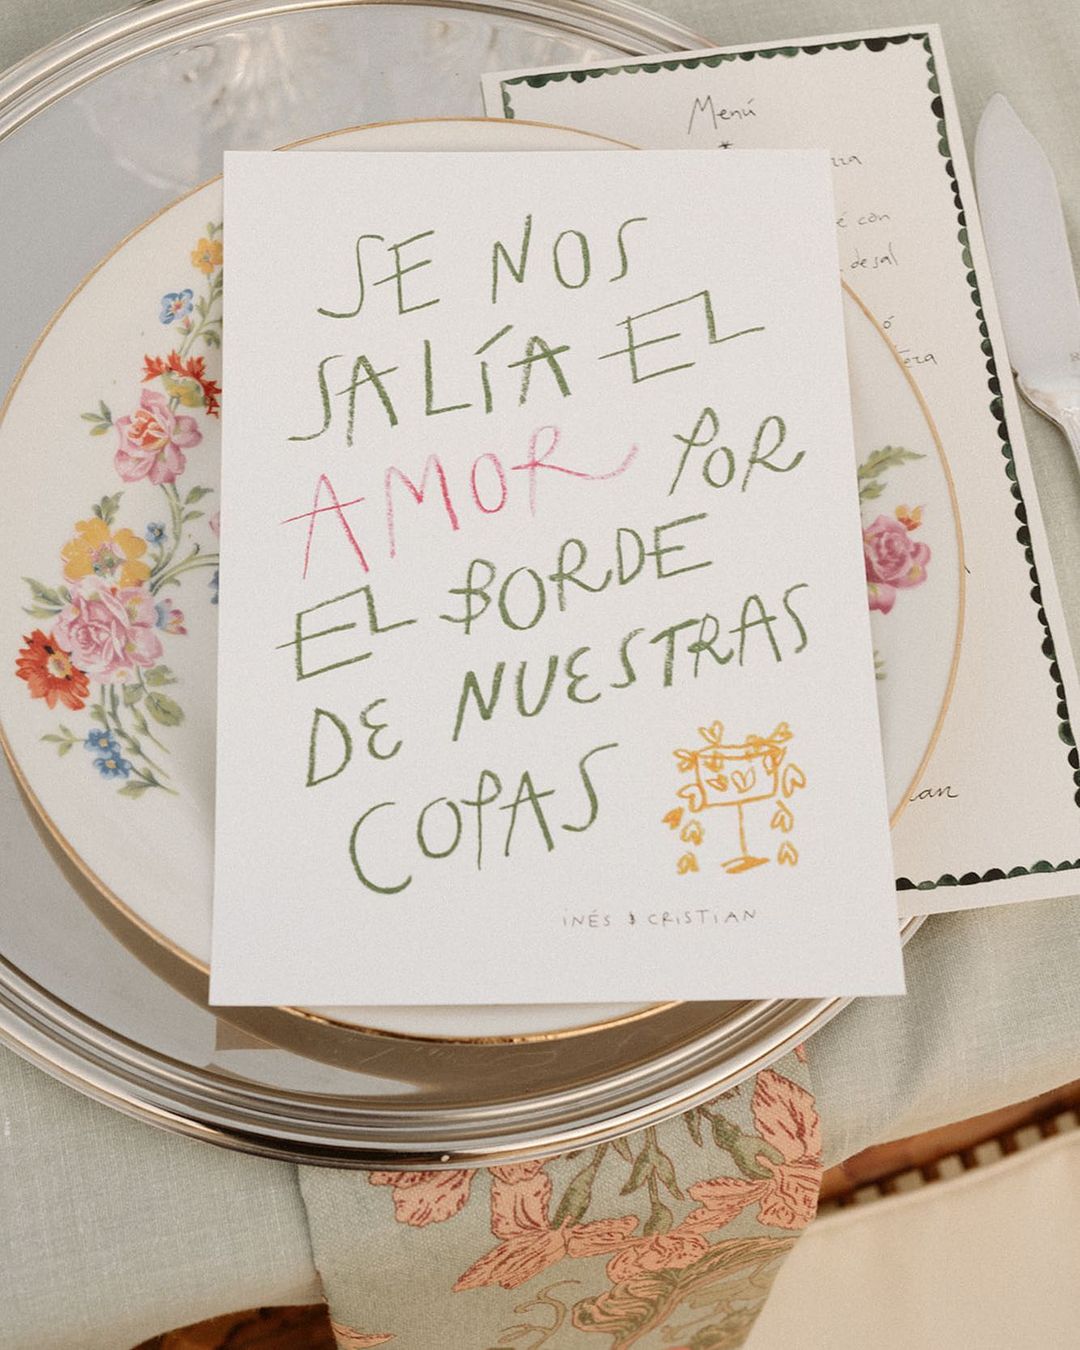 SE NOS
SALÍA EL
AMOR POR
EL BORDE
DE NUESTRAS
COPAS
INÉS & CRISTIAN
Menú
*
con
de sal